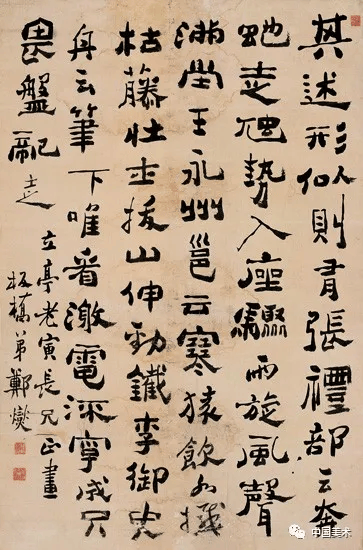 其述形似則有張禮部云奔
虵走虺勢入座驟雨旋風聲
滿堂王永州邕云寒猿飲水撼
枯藤壯士拔山伸勁鐵李御史
舟云筆下唯看激電流字成只
畏盤龍走
立亭老寅長兄正畫
板橋弟鄭燮
中国美术